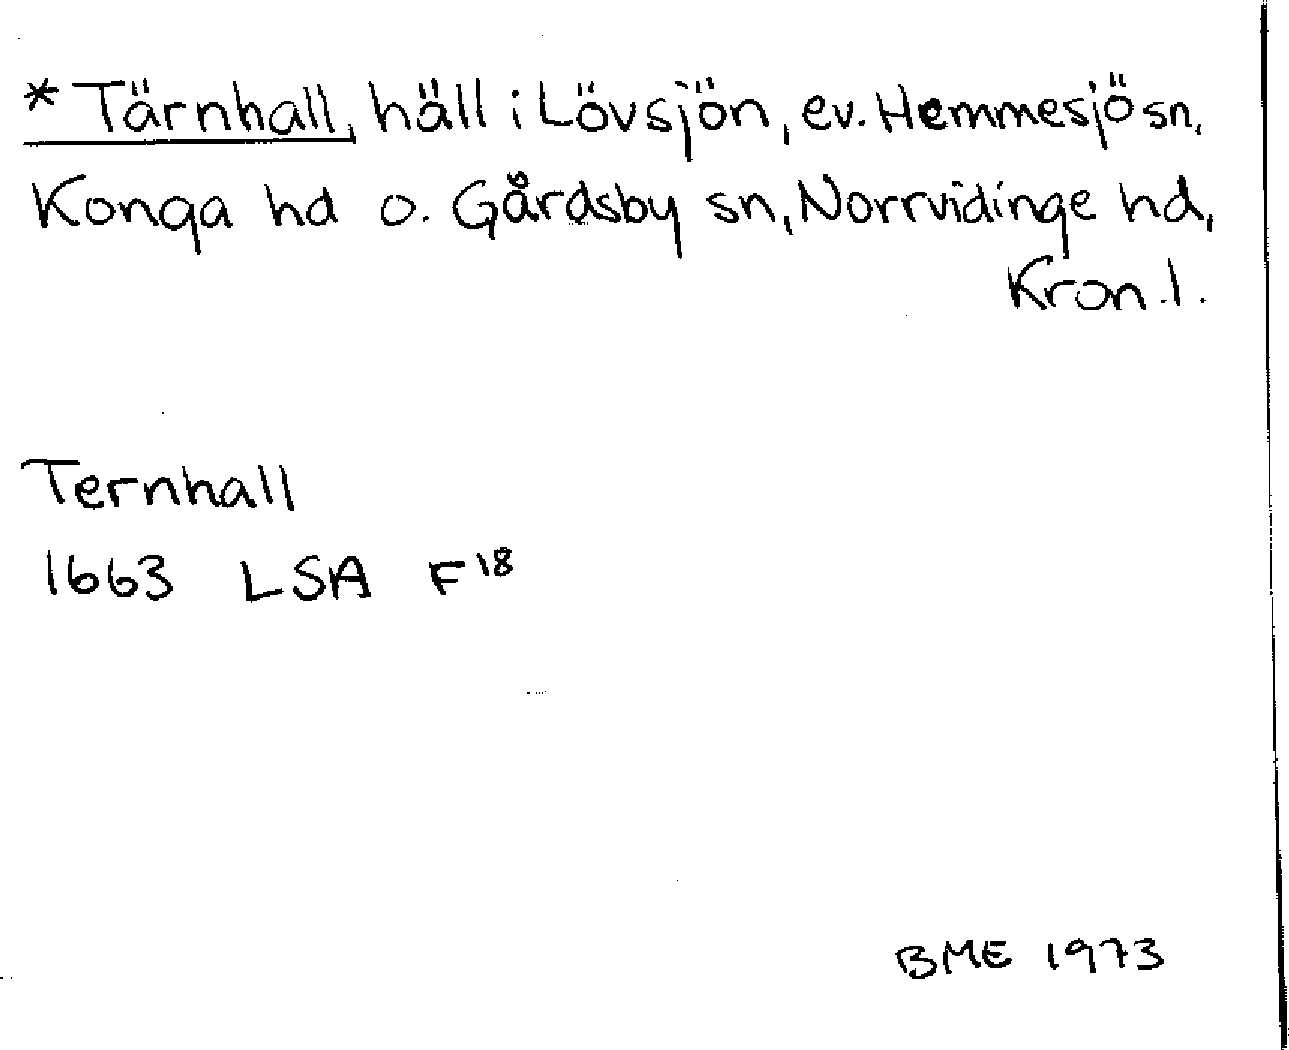 * Tärnhall, häll i Lövsjön, ev. Hemmesjö sn,
Konga hd o. Gårdsby sn, Norrvidinge hd,
Kron.l.
Ternhall
1663 LSA F¹⁸
BME 1973